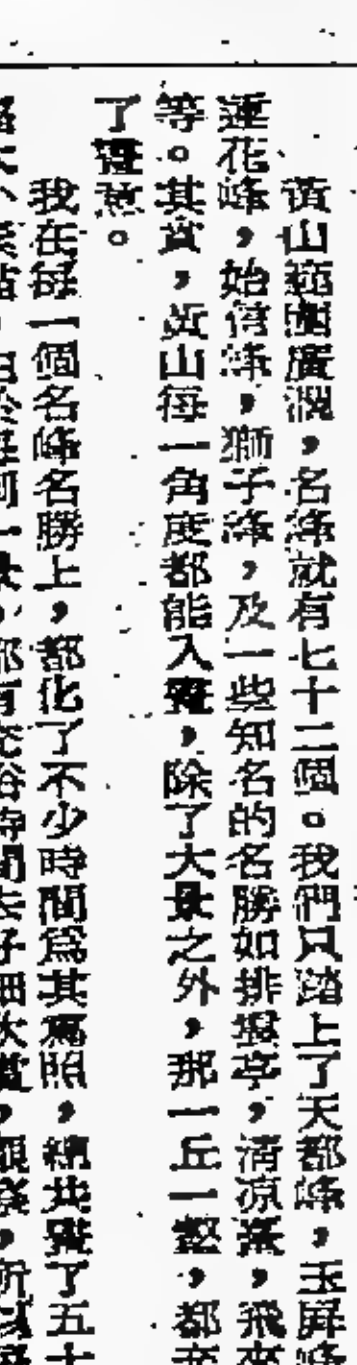 黃山範圍廣濶,名峰就有七十二個。我們只踏上了天都峰,玉屏峰
蓮花峰,始信峰,獅子峰,及一些知名的名勝如排雲亭,清凉臺,飛來
等。其實,黃山每一角度都能入畫,除了大景之外,那一丘一壑,都充
了畫意。
我在每一個名峰名勝上,都化了不少時間爲其寫照,總共畫了五十
,由於每到一景,都有充裕時間去仔細欣賞,觀察,所以